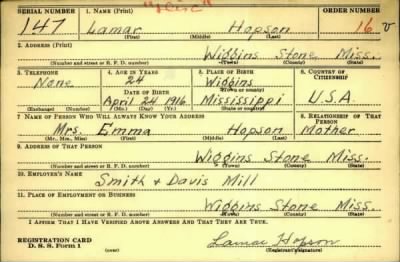 SERIAL NUMBER 1. NAME (Print) ORDER NUMBER
147 Lamar Hopson 16
(First) (Middle) (Last)
2. ADDRESS (Print)
Wiggins Stone Miss.
(Number and street or R. F. D. number) (Town) (County) (State)
3. TELEPHONE 4. AGE IN YEARS 5. PLACE OF BIRTH 6. COUNTRY OF CITIZENSHIP
None 24 Wiggins
DATE OF BIRTH (Town or county)
April 24 1916 Mississippi U.S.A.
(Exchange) (Number) (Mo.) (Day) (Yr.) (State or country)
7. NAME OF PERSON WHO WILL ALWAYS KNOW YOUR ADDRESS 8. RELATIONSHIP OF THAT PERSON
Mrs. Emma Hopson Mother
(Mr., Mrs., Miss) (First) (Middle) (Last)
9. ADDRESS OF THAT PERSON
Wiggins Stone Miss.
(Number and street or R. F. D. number) (Town) (County) (State)
10. EMPLOYER'S NAME
Smith + Davis Mill
11. PLACE OF EMPLOYMENT OR BUSINESS
Wiggins Stone Miss.
(Number and street or R. F. D. number) (Town) (County) (State)
I AFFIRM THAT I HAVE VERIFIED ABOVE ANSWERS AND THAT THEY ARE TRUE.
REGISTRATION CARD
D. S. S. Form 1 Lamar Hopson
(Registrant's signature)